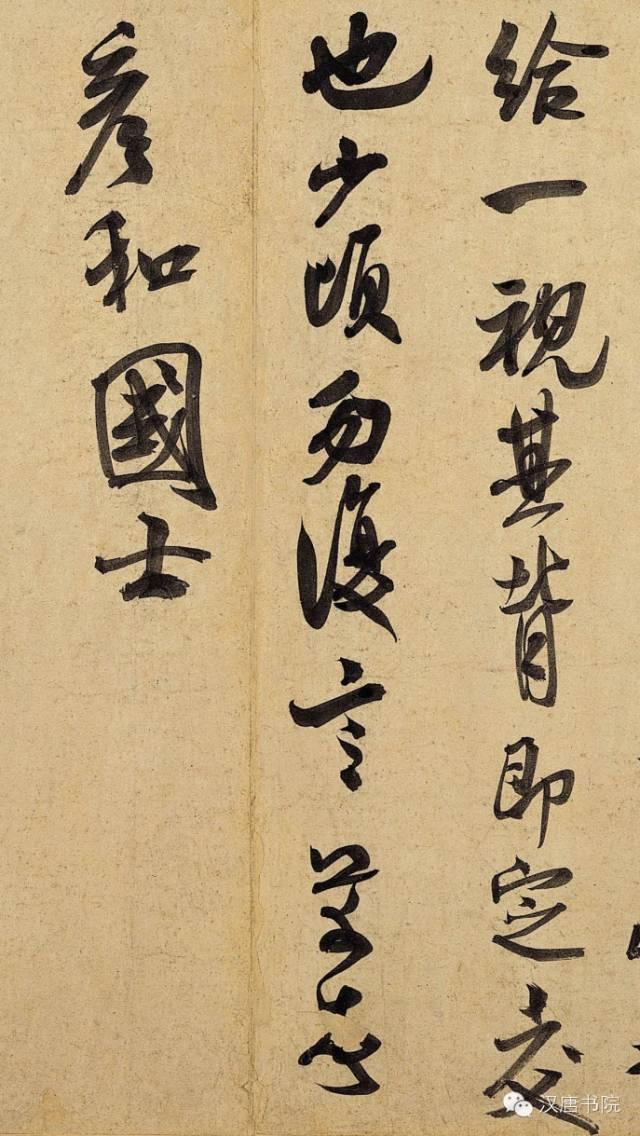 給一視其背即定交
也少頃勿復言芾頓首
彥和國士
汉唐书院